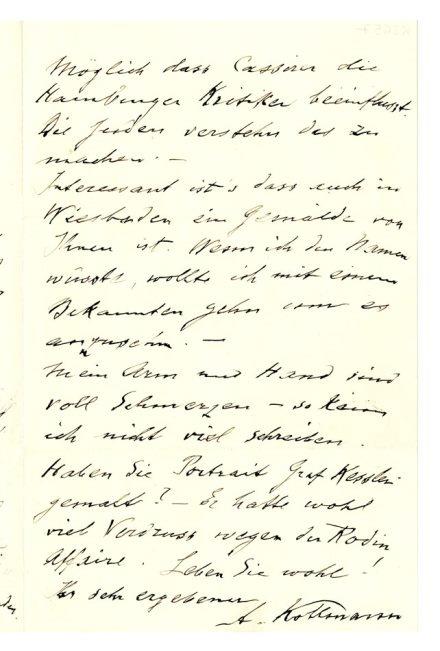 Möglich dass Cassirer die
Hamburger Kritiker beeinflusst.
Die Juden verstehn das zu
machen. —
Interessant ist's dass auch in
Wiesbaden ein Gemälde von
Ihnen ist. Wenn ich den Namen
wüsste, wollte ich mit einem
Bekannten gehn um es
anzusehn. —
Mein Arm und Hand sind
voll Schmerzen — so kann
ich nicht viel schreiben.
Haben Sie Portrait Graf Kessler
gemalt? — Er hatte wohl
viel Verdruss wegen der Rodin
Affaire. Leben Sie wohl!
Ihr sehr ergebener
A. Kollmann